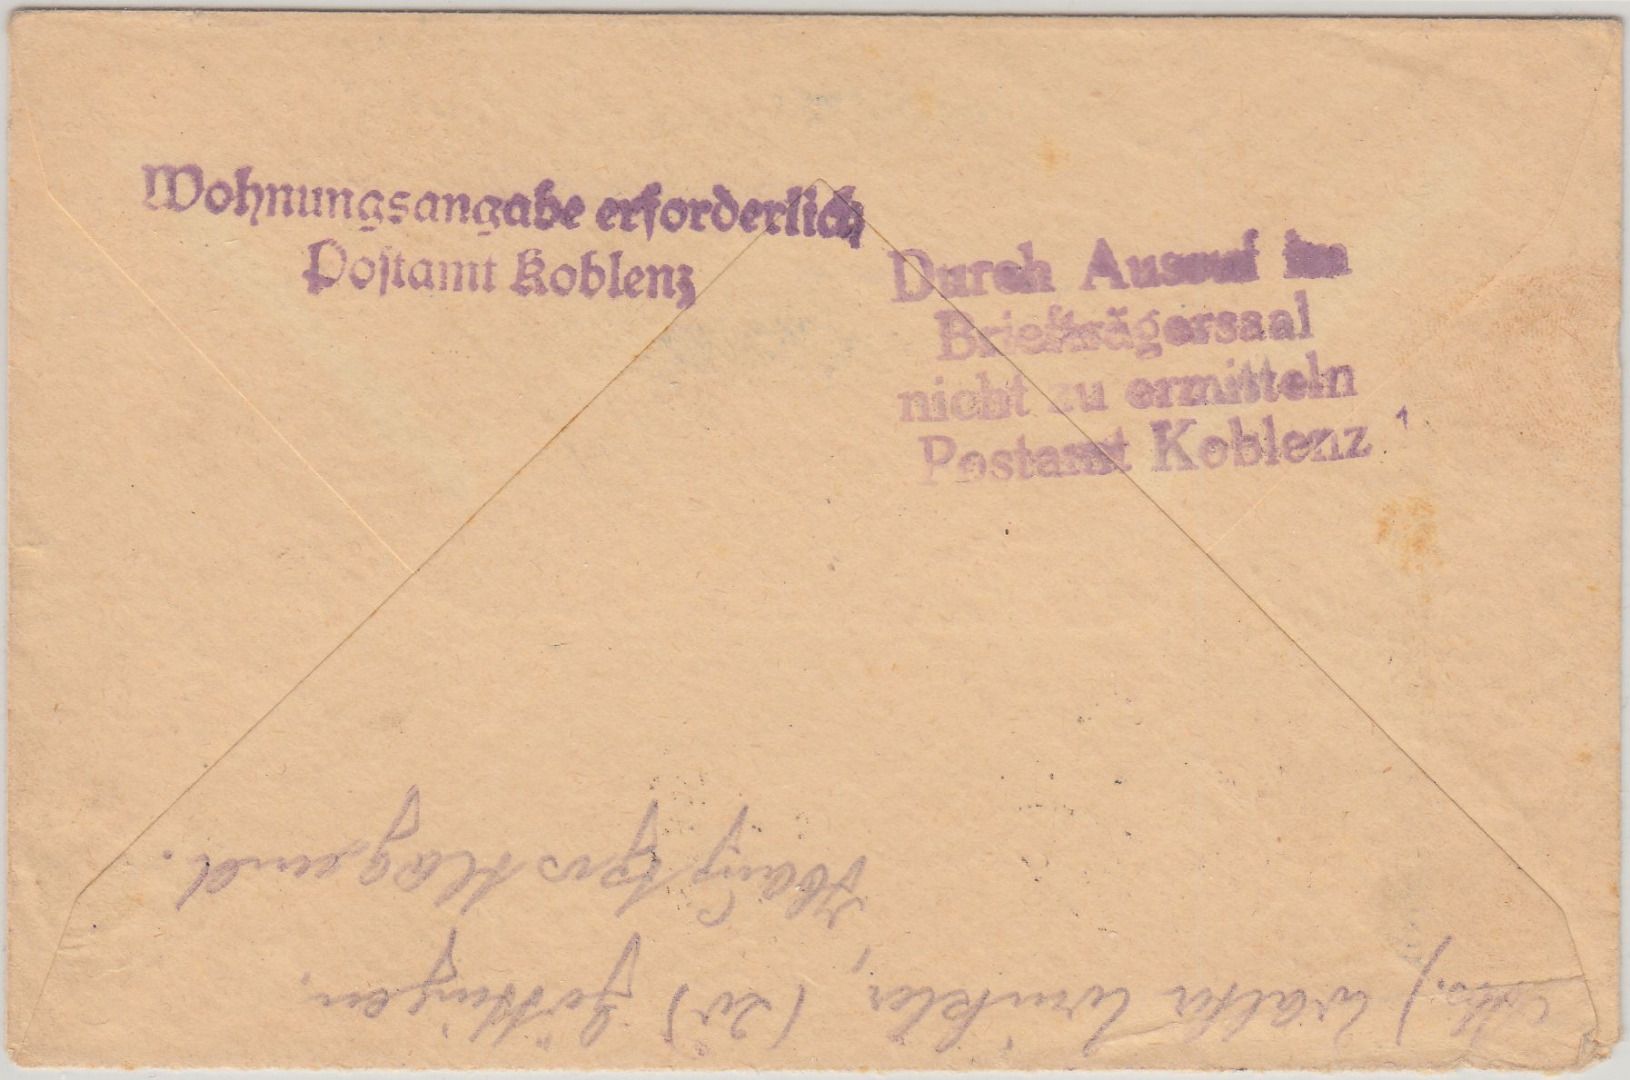 Wohnungsangabe erforderlich
Postamt Koblenz
Durch Ausruf im
Briefträgersaal
nicht zu ermitteln
Postamt Koblenz 1
Abs.) Walter Winkler, (20) Göttingen,
Hauptpostlagernd.